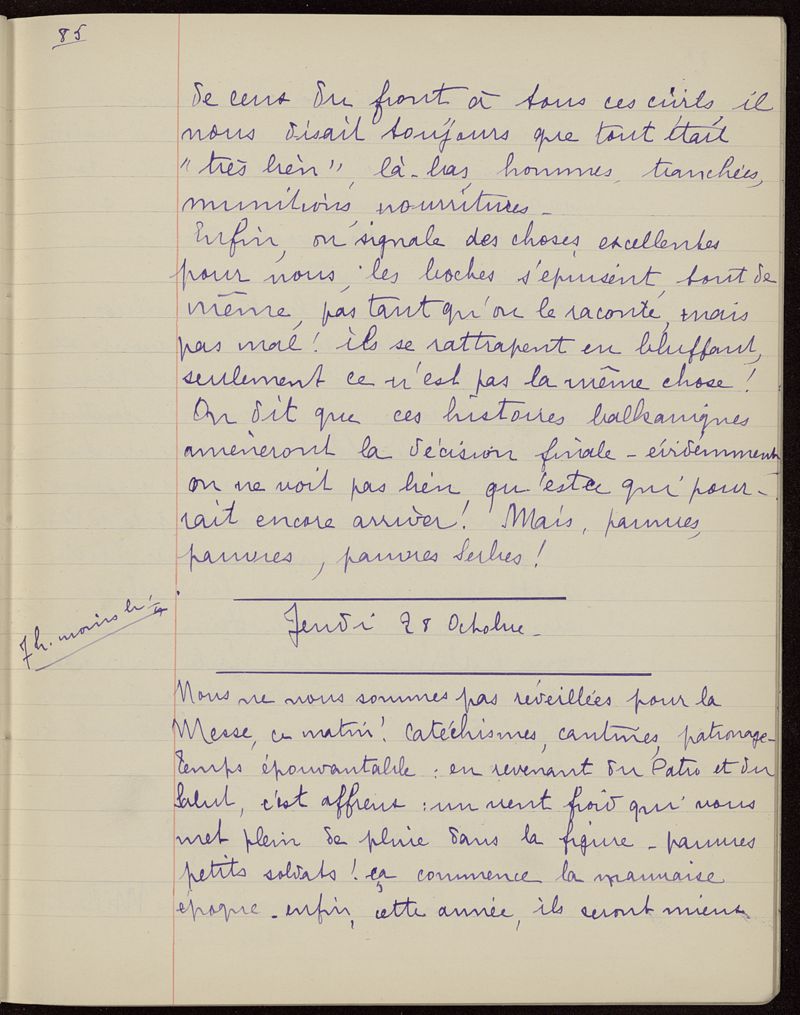 85
de ceux du front à tous ces civils, il
nous disait toujours que tout était
"très bien", là-bas, hommes, tranchées,
munitions, nourritures -
Enfin, on signale des choses excellentes
pour nous ; les boches s'épuisent, tout de
même, pas tant qu'on le raconte, mais
pas mal ! ils se rattrapent en bluffant,
seulement ce n'est pas la même chose !
On dit que ces histoires balkaniques
amèneront la décision finale - évidemment
on ne voit pas bien, qu'est ce qui pour-
rait encore arriver ! Mais, pauvres,
pauvres, pauvres Serbes !
7h. moins le ¼
Jeudi 28 Octobre -
Nous ne nous sommes pas réveillées pour la
Messe, ce matin ! Catéchismes, cantines, patronage -
temps épouvantable : en revenant du Patro et du
Salut, c'est affreux : un vent froid qui vous
met plein de pluie dans la figure - pauvres
petits soldats ! ça commence la mauvaise
époque - enfin, cette année, ils seront mieux